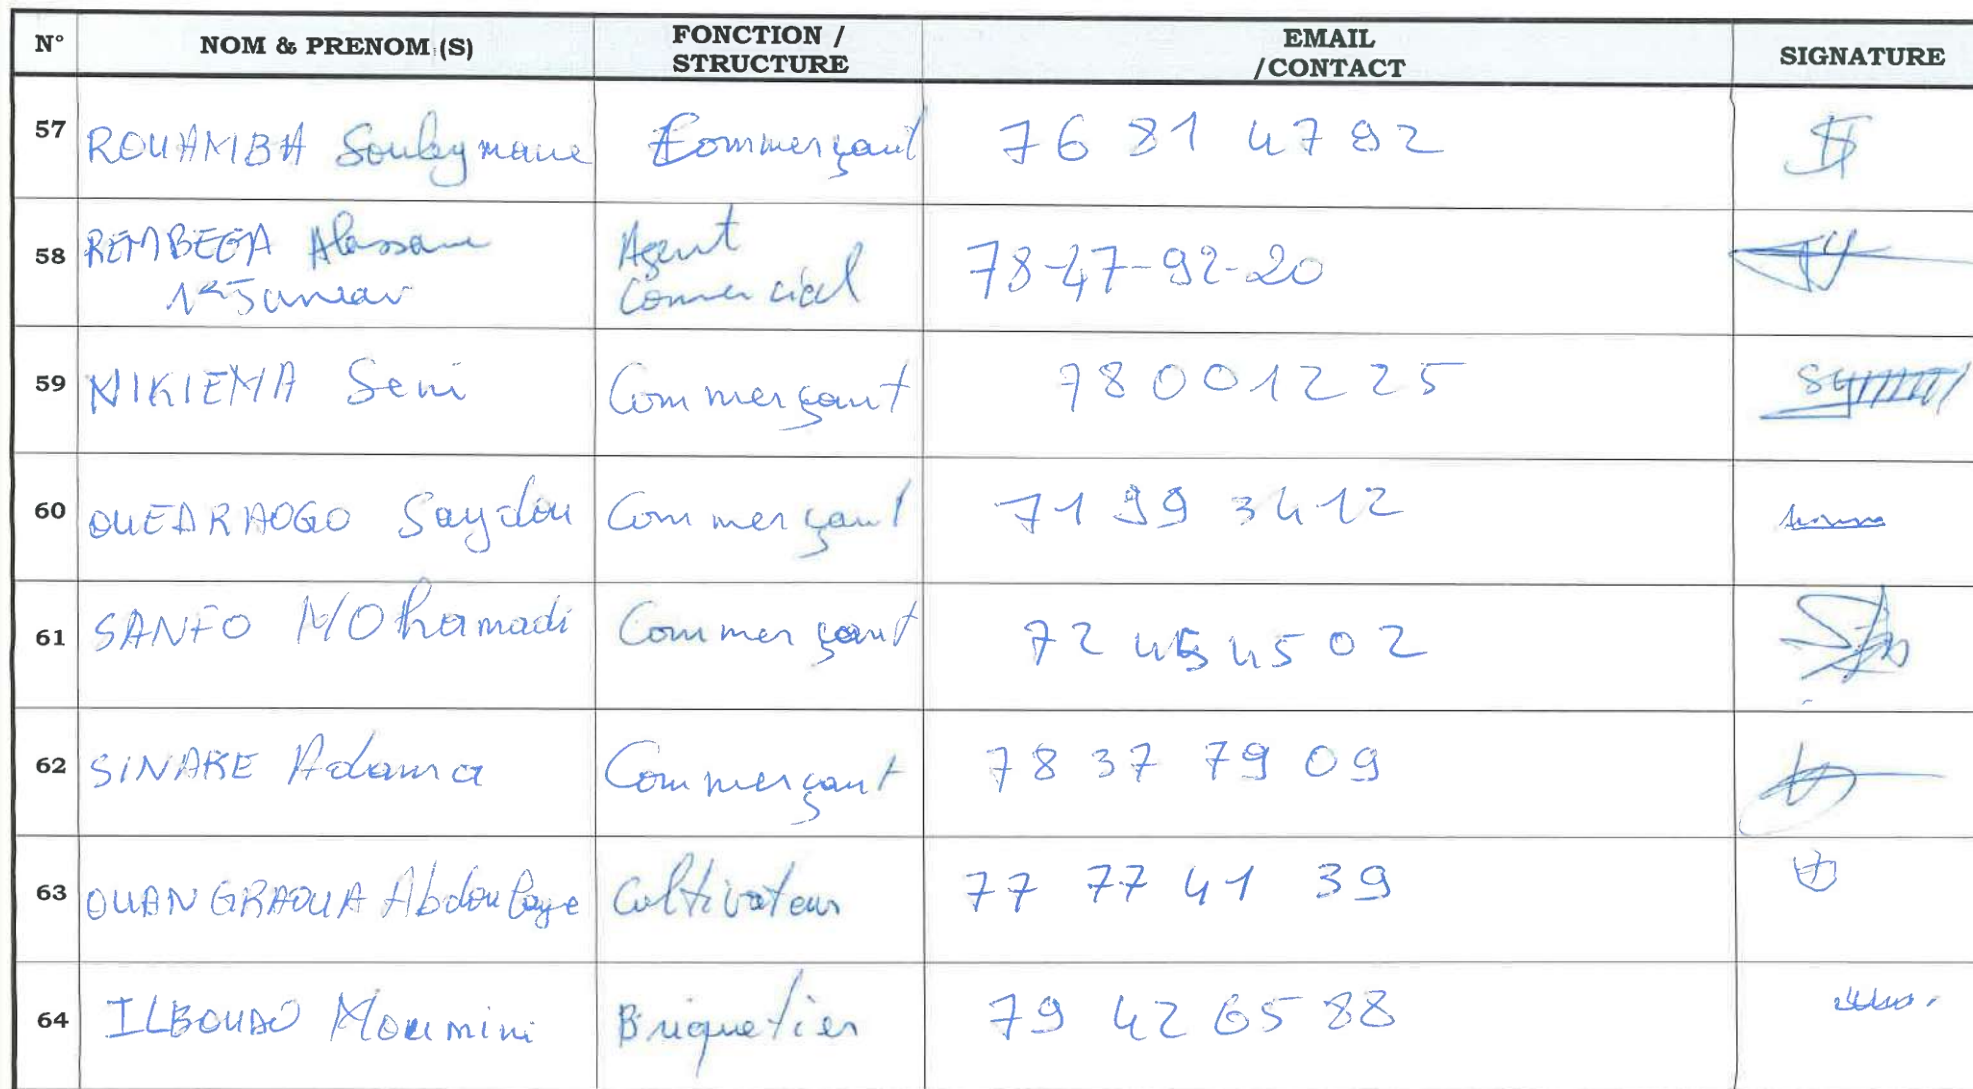 N° NOM & PRENOM (S) FONCTION / STRUCTURE EMAIL /CONTACT SIGNATURE
57 ROUAMBA Souleymane Commerçant 76 81 47 92
58 REMBEGA Alassane 1er Janvier Agent Commercial 78-47-92-20
59 NIKIEMA Seni Commerçant 78 00 12 25
60 OUEDRAOGO Saydou Commerçant 71 99 34 12
61 SANFO MOhamadi Commerçant 72 45 45 02
62 SINARE Adama Commerçant 78 37 79 09
63 OUANGRAOUA Abdoulaye Cultivateur 77 77 41 39
64 ILBOUDO Moumini Briquetier 79 42 65 88